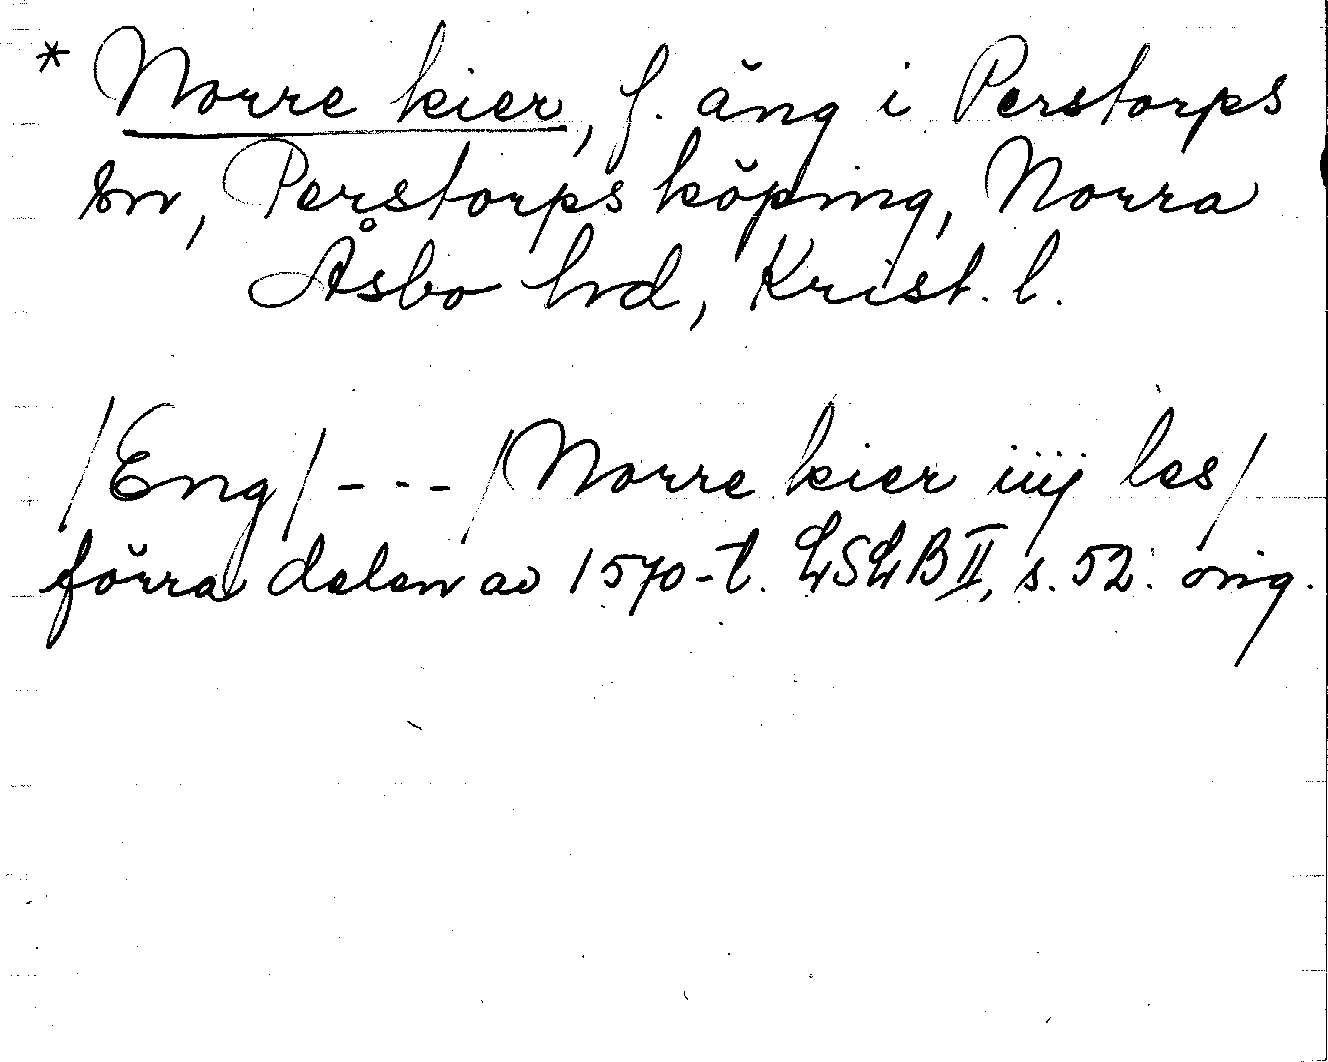 * Norre kier, f. äng i Perstorps
sn, Perstorps köping, Norra
Åsbo hd, Krist. l.
/Eng/ - - - /Norre kier iiij les/
förra delen av 1570-t. LSLB II, s. 52. orig.